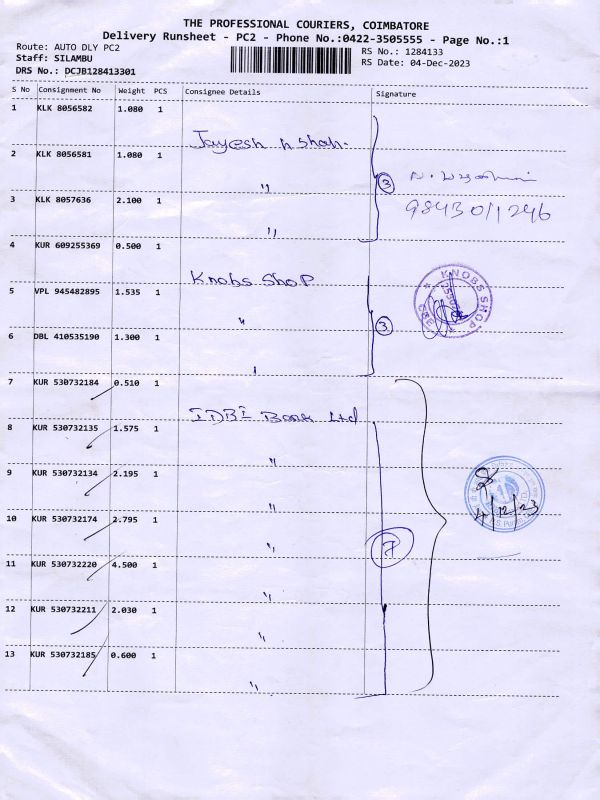 THE PROFESSIONAL COURIERS, COIMBATORE
Delivery Runsheet - PC2 - Phone No.:0422-3505555 - Page No.:1
Route: AUTO DLY PC2
Staff: SILAMBU
DRS No.: DCJB128413301
RS No.: 1284133
RS Date: 04-Dec-2023
S No Consignment No Weight PCS Consignee Details Signature
1 KLK 8056582 1.080 1
Jayesh n Shah.
2 KLK 8056581 1.080 1
"
3
3 KLK 8057636 2.100 1
9843011246
"
4 KUR 609255369 0.500 1
Knobs Shop
KNOBS SHOP
5 VPL 945482895 1.535 1
"
3
6 DBL 410535190 1.300 1
"
7 KUR 530732184 0.510 1
IDBI Bank Ltd
8 KUR 530732135 1.575 1
"
9 KUR 530732134 2.195 1
"
4/12/23
10 KUR 530732174 2.795 1
"
7
11 KUR 530732220 4.500 1
"
12 KUR 530732211 2.030 1
"
13 KUR 530732185 0.600 1
"